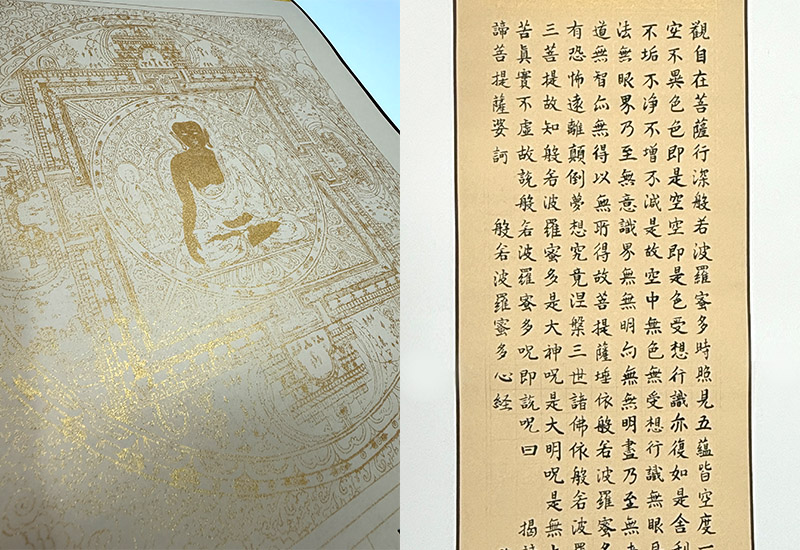 觀自在菩薩行深般若波羅蜜多時照見五蘊皆空度一
空不異色色即是空空即是色受想行識亦復如是舍利
不垢不净不增不減是故空中無色無受想行識無眼
法無眼界乃至無意識界無無明亦無無明盡乃至無
道無智亦無得以無所得故菩提薩埵依般若波羅蜜多
有恐怖遠離顛倒夢想究竟涅槃三世諸佛依般若波羅
三菩提故知般若波羅蜜多是大神呪是大明呪是無上
苦真實不虛故說般若波羅蜜多呪即說呪曰 揭
諦菩提薩婆訶 般若波羅蜜多心経